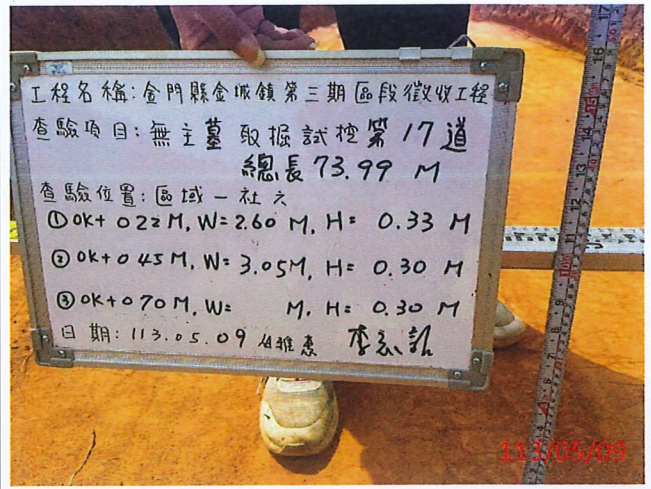 工程名稱:金門縣金城鎮第三期區段徵收工程
查驗項目:無主墓 取掘試挖第17道
總長73.99 M
查驗位置:區域一社六
①0K+022M, W=2.60 M, H= 0.33 M
②0K+045M, W=3.05M, H= 0.30 M
③0K+070M, W= M, H= 0.30 M
日期:113.05.09
113/05/09